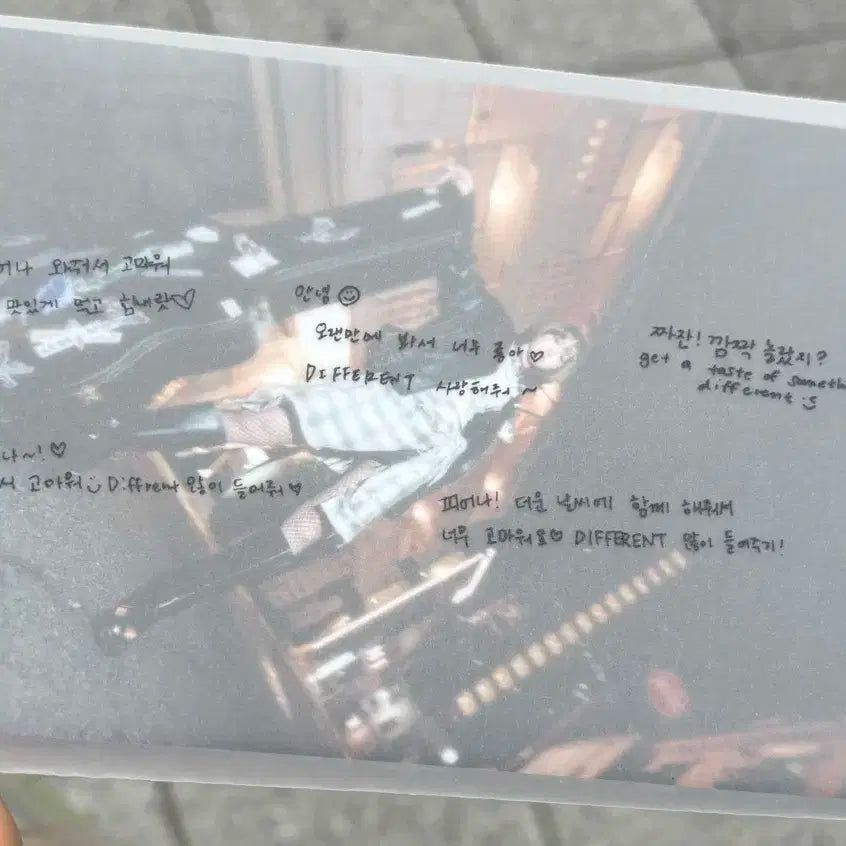 어나 와줘서 고마워
맛있게 먹고 힘내랏♡
안녕☺
오랜만에 봐서 너무 좋아♡
DIFFERENT 사랑해줘~
짜잔! 깜짝 놀랐지?
get a taste of someth
different :S
나~!♡
서 고마워 Diffrent 많이 들어줘♥
피어나! 더운 날씨에 함께 해줘서
너무 고마워요♡ DIFFERENT 많이 들어주기!